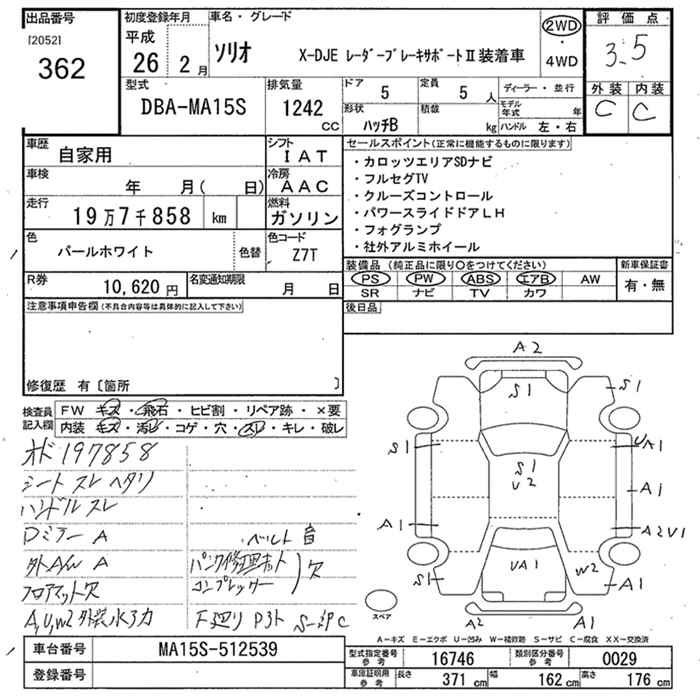 出品番号
[2052]
362
初度登録年月
平成
26 2月
車名・グレード
ソリオ X-DJE レーダーブレーキサポートⅡ装着車
2WD
・
4WD
評価点
3.5
外装 内装
C C
型式
DBA-MA15S
排気量
1242
cc
ドア
5
定員
5人
形状
ハッチB
積載
kg
ディーラー・並行
モデル年式 年
ハンドル 左・右
車歴
自家用
シフト
IAT
車検
年 月( 日)
冷房
AAC
走行
19万7千858 km
燃料
ガソリン
色
パールホワイト
色替
色コード
Z7T
R券
10,620円
名変通知期限
月 日
セールスポイント(正常に機能するものに限ります)
・カロッツエリアSDナビ
・フルセグTV
・クルーズコントロール
・パワースライドドアLH
・フォグランプ
・社外アルミホイール
装備品(純正品に限り○をつけてください)
PS PW ABS エアB AW
SR ナビ TV カワ
新車保証書
有・無
後日品
注意事項申告欄(不具合内容等は具体的に記入して下さい)
修復歴 有〔箇所 〕
検査員記入欄
FW キズ・飛石・ヒビ割・リペア跡・×要
内装 キズ・汚レ・コゲ・穴・スレ・キレ・破レ
オド197858
シート スレ ヘタリ
ハンドル スレ
Dミラー A
ベルト 音
外AW A
パンク修理キット
コンプレッサー
欠
フロアマット欠
A,U,W2 外装
A2
S1
S1
S1
UA1
S1
U2
A1
A1
A2U1
UA1
W2
S1
A1
A2
A1
スペア
A－キズ E－エクボ U－凹み W－補修跡 S－サビ C－腐食 XX－交換済
車台番号
MA15S-512539
登録番号
型式指定番号 参考
16746
類別区分番号 参考
0029
車庫証明用 参考
長さ
371 cm
幅
162 cm
高さ
176 cm